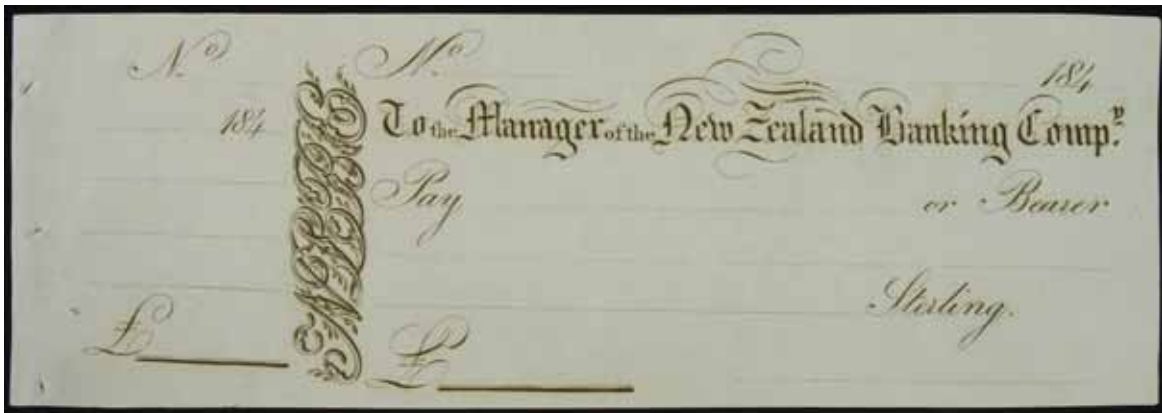 No.
184
£
No. 184
To the Manager of the New Zealand Banking Compy.
Pay or Bearer
Sterling.
£